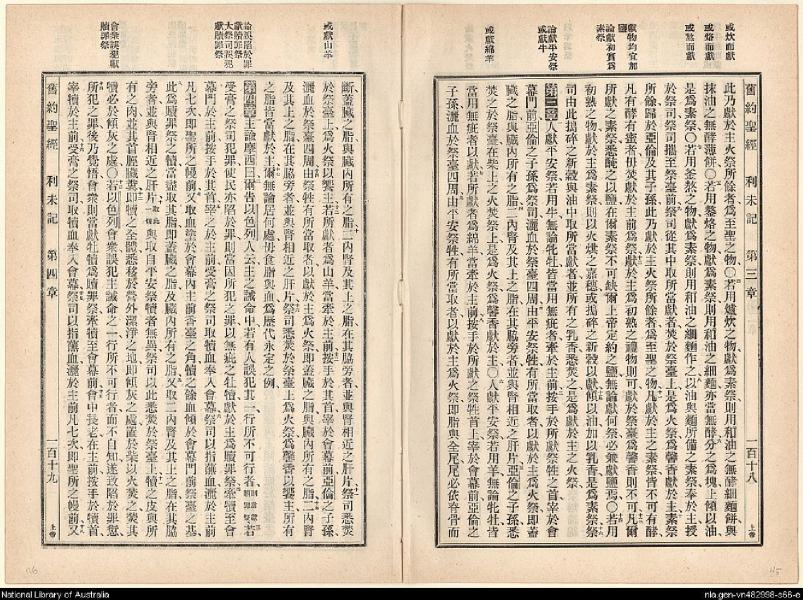 或炊而獻
或熬而獻
獻物均宜加
鹽
論獻初實爲
素祭
論獻平安祭
或獻牛
或獻綿羊
舊約聖經 利未記 第三章 一百十八 上帝
此乃獻於主火祭所餘者爲至聖之物〇若用爐炊之物獻爲素祭則用和油之無酵細麵餅與
抹油之無酵薄餅〇若用鏊烙之物獻爲素祭則用和油之細麵亦當無酵分之爲塊上傾以油
是爲素祭〇若用釜熬之物獻爲素祭則用和油之細麵作之以油與麵所備之素祭奉於主授
於祭司祭司攜至祭臺前祭司從其中取所當獻者焚於祭臺上是爲火祭爲馨香獻於主祭
所餘歸於亞倫及其子孫此乃獻於主火祭所餘者爲至聖之物凡獻於主之素祭皆不可有酵
凡有酵有蜜者毋焚獻於主前爲火祭獻於主爲初熟之禮物則可獻於祭臺爲馨香則不可凡爾
所獻之素祭悉醃之以鹽在爾素祭不可缺爾上帝定約之鹽無論獻何祭必兼獻鹽焉〇若用
初熟之物獻於主爲素祭則以火焙之嘉穗或搗碎之新穀以獻傾以油加以乳香是爲素祭祭
司由此搗碎之新穀與油中取所當獻者並所有之乳香悉焚之是爲獻於主之火祭
第三章 人獻平安祭若用牛無論牝牡皆當用無疵者牽之於主前按手於所獻祭牲之首宰於會
幕門前亞倫之子孫爲祭司灑血於祭臺四周由平安祭牲有所當取者以獻於主爲火祭即蓋
臟之脂與臟內所有之脂二內腎及其上之脂在其脇旁者並與腎相近之肝片亞倫之子孫悉
焚之於祭臺在柴上之火焚祭上是爲火祭爲馨香獻於主〇人獻平安祭若用羊無論牝牡皆
當用無疵者獻以獻若所獻者爲綿羊當牽於主前按手於所獻之祭牲首宰於會幕前亞倫之
子孫灑血於祭臺四周由平安祭牲有所當取者以獻於主爲火祭即脂與全尾尾必依脊骨而
或獻山羊
論誤陷於罪
獻贖罪祭
大祭司誤犯
獻贖罪祭
會衆誤犯獻
贖罪祭
斷蓋臟之脂與臟內所有之脂二內腎及其上之脂在其脇旁者並與腎相近之肝片祭司悉焚
於祭臺上爲火祭以饗主若所獻爲山羊當牽於主前按手於其首宰於會幕前亞倫之子孫
灑血於祭臺四周由祭牲有所當取者以獻於主爲火祭即蓋臟之脂與臟內所有之脂二內腎
及其上之脂在其脇旁者並與腎相近之肝片祭司悉焚於祭臺上爲火祭爲馨香以饗主所有
之脂皆當獻於主爾無論居何處毋食脂與血爲歷代永定之例
第四章 主諭摩西曰爾告以色列人云主之誡命中若有人誤犯其一行所不可行者
受膏之祭司犯罪使民亦陷於罪則當因所犯之罪以無疵之牡犢獻於主爲贖罪祭牽犢至會
幕門於主前按手於其首宰之於主前受膏之祭司取犢血奉入會幕祭司以指蘸血灑於主前
凡七次即聖所之幔前又取血染於會幕內主前香臺之角犢之餘血傾於會幕門前祭臺之基
此爲贖罪祭之犢當盡取其脂即蓋臟之脂及臟內所有之脂又取二內腎及其上之脂在其脇
旁者並與腎相近之肝片與取自平安祭犢者無異祭司以此悉焚於祭臺上犢之皮與所
有之肉並其首脛臟糞即犢之全體悉移於營外潔淨之地即傾灰之處置於柴以火焚之焚其
犢必於傾灰之處〇若以色列即衆誤犯主誡命之一行所不可行者而不自知遂致陷於罪愆
所犯之罪後乃覺悟會衆則當獻牡犢爲贖罪祭牽犢至會幕前會中長老在主前按手於犢首
宰犢於主前受膏之祭司取犢血奉入會幕祭司以指蘸血灑於主前凡七次即聖所之幔前又
舊約聖經 利未記 第四章 一百十九 上帝
National Library of Australia
nla.gen-vn482998-s66-e